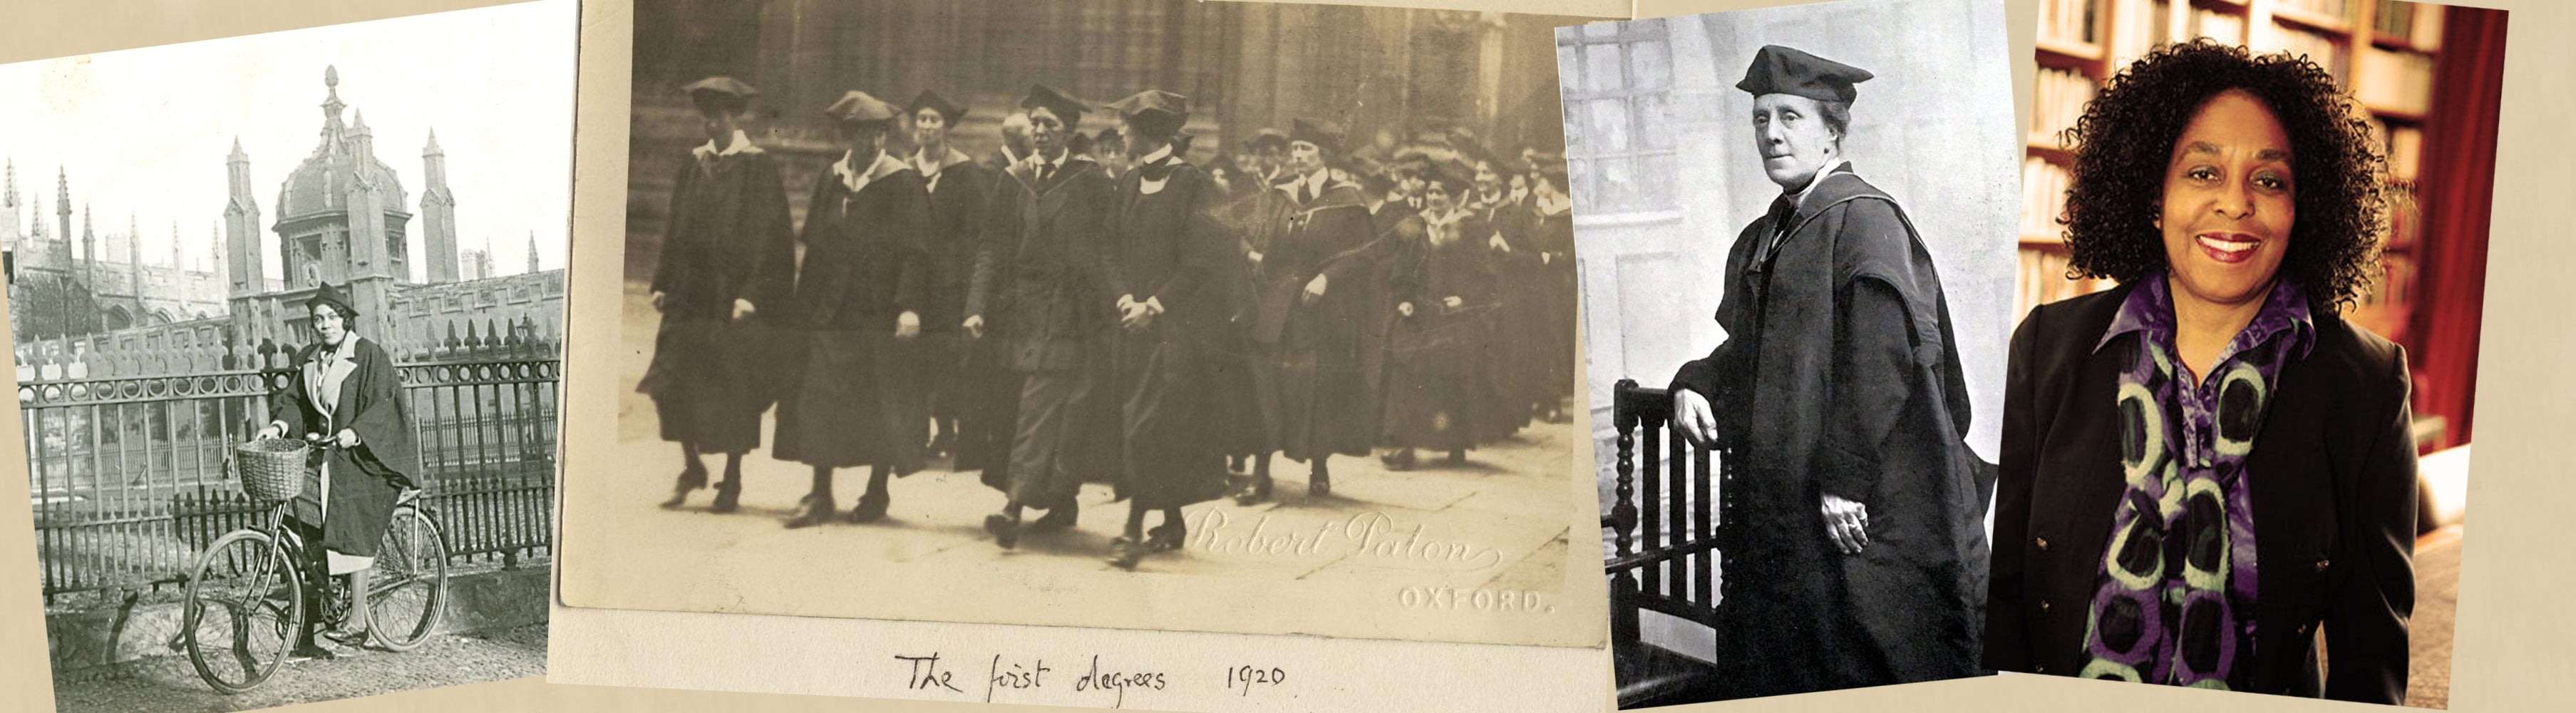 Robert Paton
OXFORD.
The first degrees 1920.